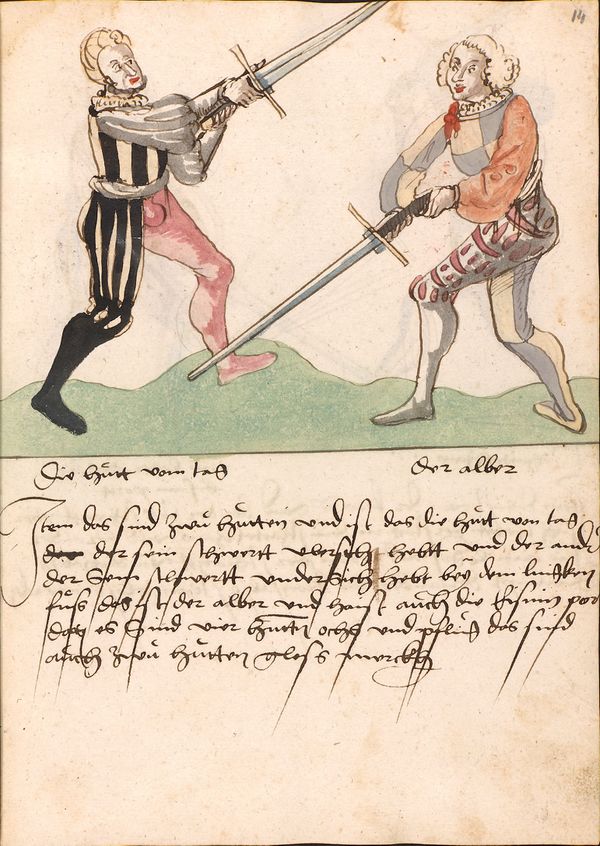 14
die hůtt vom tag
der alber
Item das sind zwu hůtten und ist das die hůtt von tag
der sein schwertt ubersich hebtt und der ander
der sein schwertt undersich hebt bey dem lincken
fuss das ist der alber und haist auch die Eisinin por
dan es sind vier hůttn ochs und pflůg das sind
auch zwu hůtten gloss